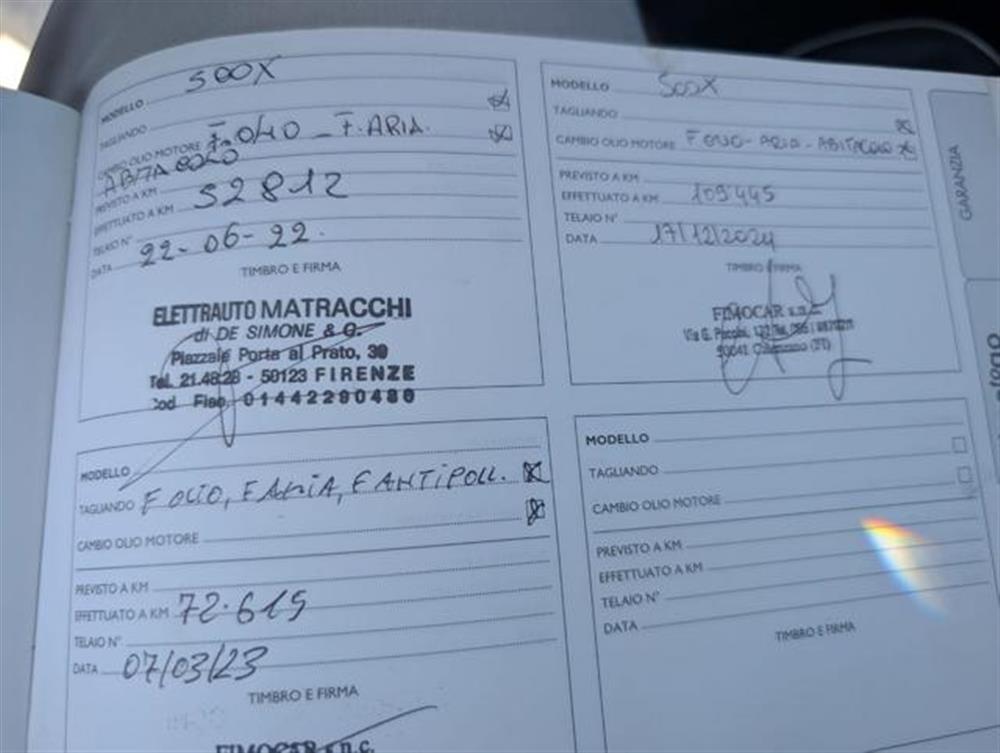 MODELLO 500X
TAGLIANDO
CAMBIO OLIO MOTORE F. OLIO - F. ARIA.
ABITACOLO
PREVISTO A KM
EFFETTUATO A KM 52812
TELAIO N°
DATA 22-06-22.
TIMBRO E FIRMA
ELETTRAUTO MATRACCHI
di DE SIMONE & G.
Piazzale Porta al Prato, 39
Tel. 21.48.28 - 50123 FIRENZE
Cod Fisc. 01442290480
MODELLO
TAGLIANDO F OLIO, F ARIA, F ANTIPOLL.
CAMBIO OLIO MOTORE
PREVISTO A KM
EFFETTUATO A KM 72.615
TELAIO N°
DATA 07/03/23
TIMBRO E FIRMA
FIMOCAR s.n.c.
MODELLO 500X
TAGLIANDO
CAMBIO OLIO MOTORE F OLIO - ARIA - ABITACOLO
PREVISTO A KM
EFFETTUATO A KM 109445
TELAIO N°
DATA 17/12/2024
TIMBRO E FIRMA
FIMOCAR s.n.c.
Via G.
50041 Calenzano (FI)
MODELLO
TAGLIANDO
CAMBIO OLIO MOTORE
PREVISTO A KM
EFFETTUATO A KM
TELAIO N°
DATA
TIMBRO E FIRMA
GARANZIA